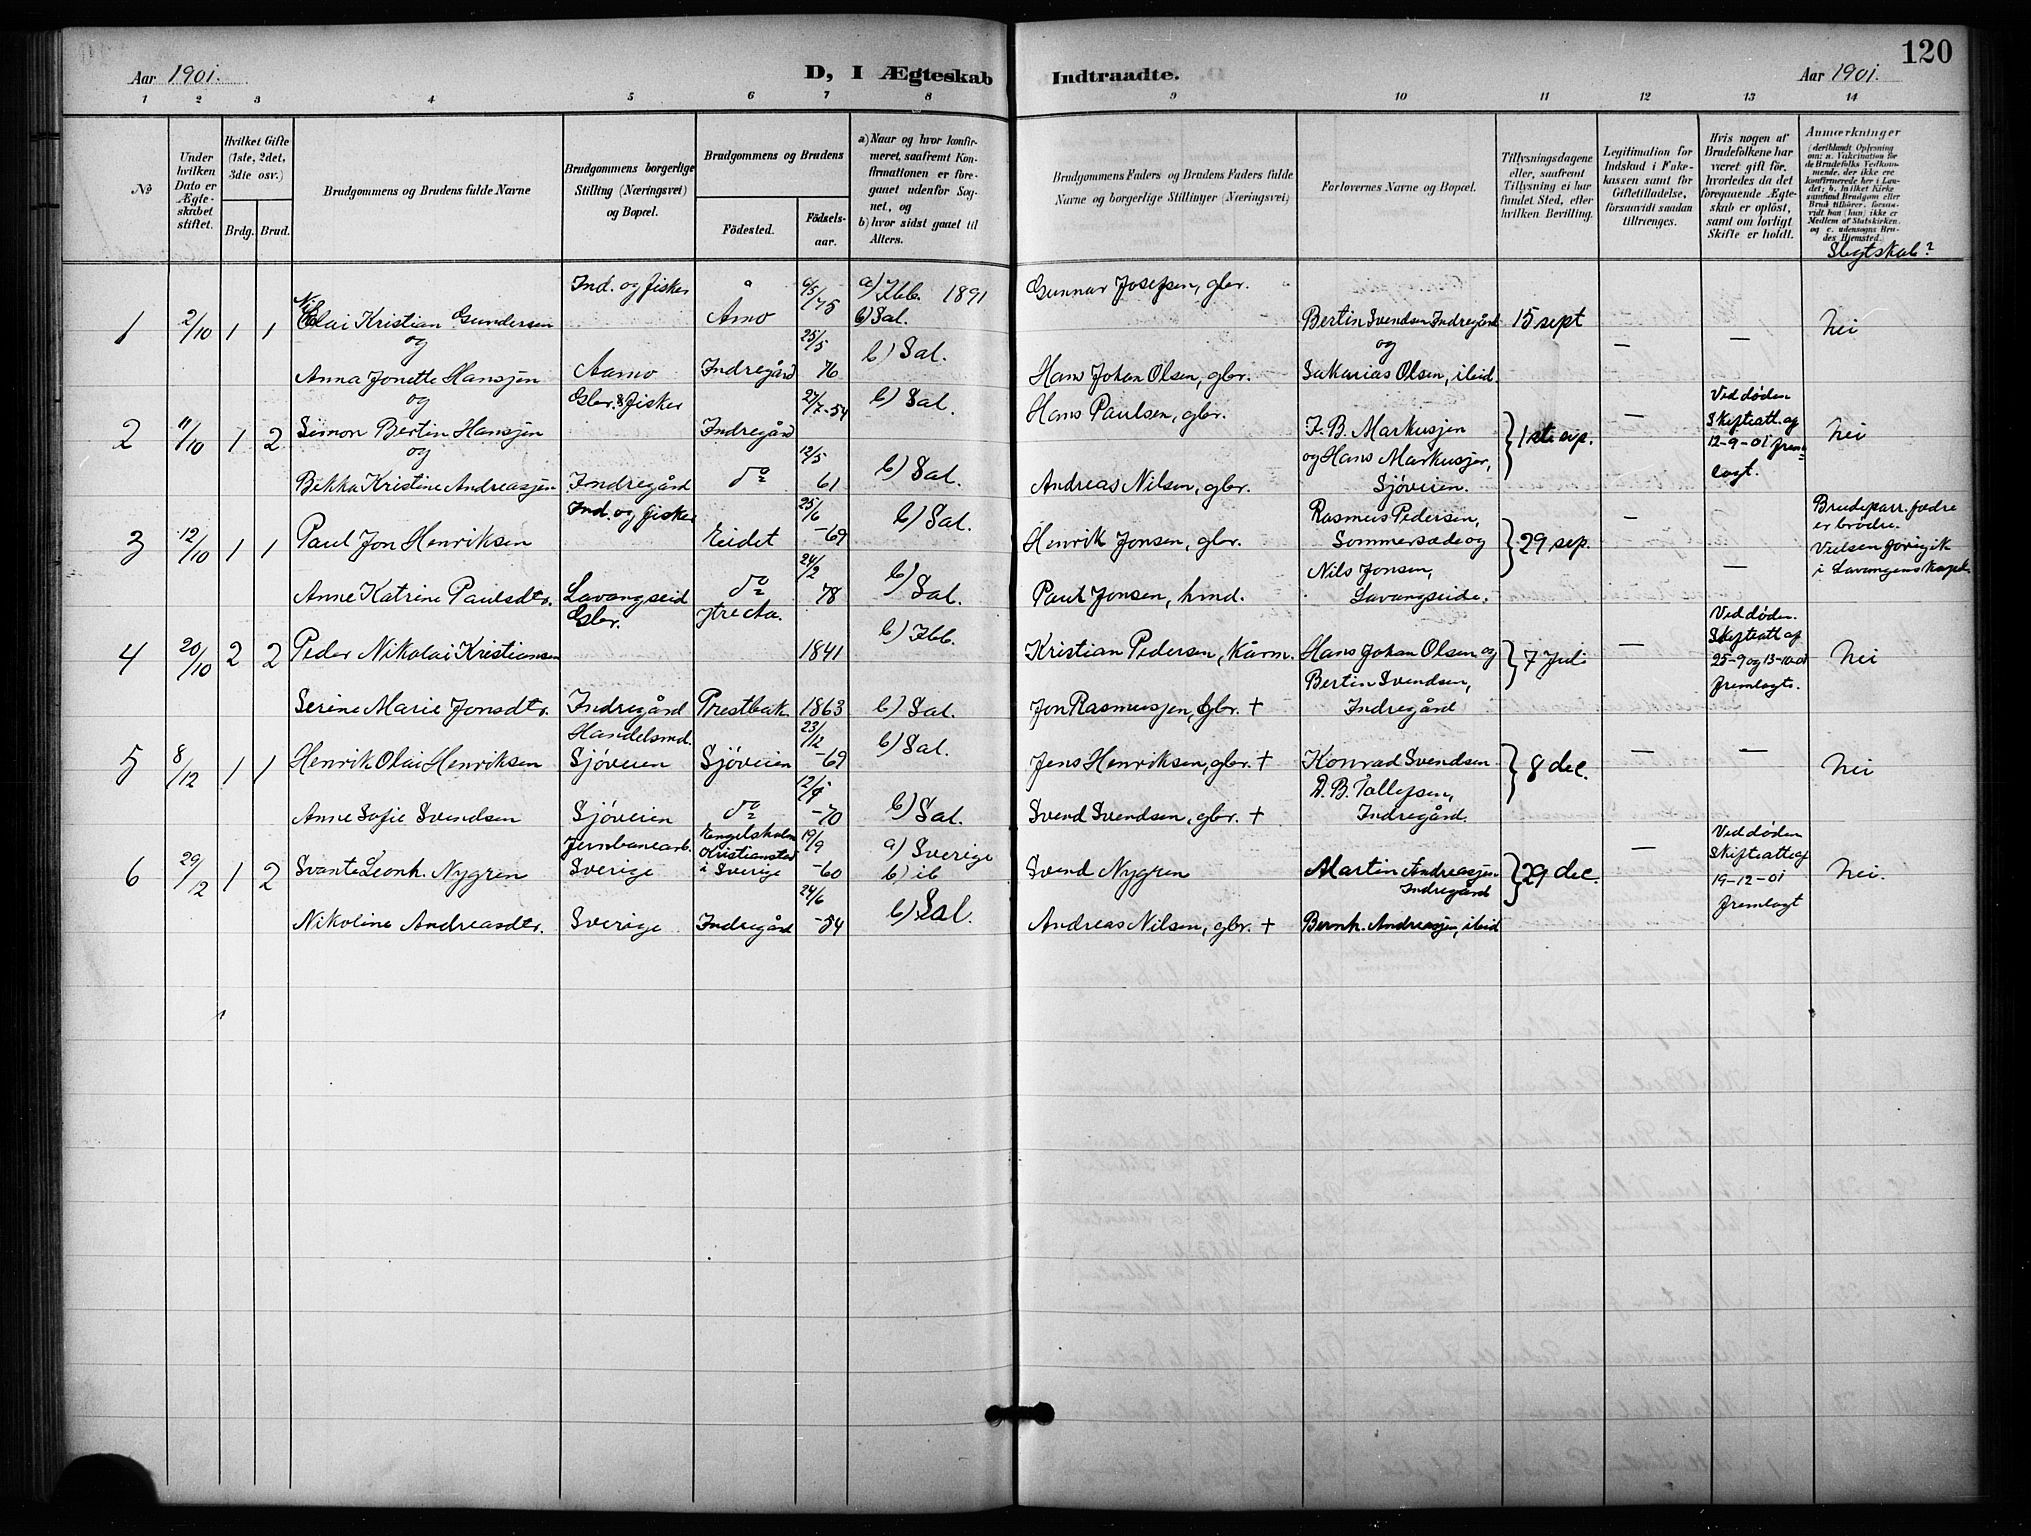 120
Aar 1901.
D, I Ægteskab Indtraadte.
Aar 1901.
1 2 3 4 5 6 7 8 9 10 11 12 13 14
No
Under hvilken Dato er Ægteskabet stiftet.
Hvilket Gifte (1ste, 2det, 3die osv.)
Brdg. Brud.
Brudgommens og Brudens fulde Navne
Brudgommens borgerlige Stilling (Næringsvei) og Bopæl.
Brudgommens og Brudens
Födested.
Födselsaar.
a) Naar og hvor konfirmeret, saafremt Konfirmationen er foregaaet udenfor Sognet, og
b) hvor sidst gaaet til Alters.
Brudgommens Faders og Brudens Faders fulde Navne og borgerlige Stillinger (Næringsvei)
Forlovernes Navne og Bopæl.
Tillysningsdagene eller, saafremt Tillysning ei har fundet Sted, efter hvilken Bevilling.
Legitimation for Indskud i Enkekassen samt for Giftetilladelse, forsaavidt saadan tiltrænges.
Hvis nogen af Brudefolkene har været gift för, hvorledes da det foregaaende Ægteskab er oplöst, samt om lovligt Skifte er holdt.
Anmærkninger
(deriblandt Oplysning om: a. Vakcination for de Brudefolks Vedkommende, der ikke ere konfirmerede her i Landet; b. hvilket Kirkesamfund Brudgom eller Brud tilhörer, forsaavidt han (hun) ikke er Medlem af Statskirken, og c. udensogns Brudes Hjemsted.
Slegtskab?
1 2/10 1 1 Olai Kristian Gundersen
og
Anna Jonette Hansen
Ind. og fisker
Aamo
Amo 6/5 75
Indregård 25/5 76
a) Ibb. 1891
b) Sal.
b) Sal.
Gunnar Josefsen, gbr.
Hans Johan Olsen, gbr.
Bertin Svendsen Indregård
og
Sakarias Olsen, ibid.
15 sept
—
—
nei
2 11/10 1 2 og
Simon Bertin Hansen
og
Bekka Kristine Andreassen
Gbr. & fisker
Indregård
Indregård 27/7-54
do 12/5 61
b) Sal.
b) Sal.
Hans Paulsen, gbr.
Andreas Nilsen, gbr.
J. B. Markussen
og Hans Markussen,
Sjöveien.
1ste sep.
—
Ved døden
Skifteatt. af
12-9-01 frem=
lagt.
nei
3 12/10 1 1 Paul Jon Henriksen
Anne Katrine Paulsdtr.
Ind. og fisker
Lavangseid
Eidet 25/6 -69
do 24/2 78
b) Sal.
b) Sal.
Henrik Jonsen, gbr.
Paul Jonsen, kmd.
Rasmus Pedersen,
Sommersæde og
Nils Jonsen,
Lavangseide.
29 sep.
—
—
Brudeparr. fædre
er brödre.
Vielsen foregik
i Lavangens kapel
4 20/10 2 2 Peder Nikolai Kristiansen
Serine Marie Jonsdtr.
Gbr.
Indregård
1841
Prestbak. 1863
b) Ibb.
b) Sal.
Kristian Pedersen, Kårm.
Jon Rasmussen, gbr. +
Hans Johan Olsen og
Bertin Svendsen,
Indregård
7 Juli
—
Ved døden.
Skifteatt af
25-9 og 13-10-01
fremlagts.
nei
5 8/12 1 1 Henrik Olai Henriksen
Anne Sofie Svendsen
Handelsmd.
Sjöveien
Sjöveien
Sjöveien 23/12 -69
do -70
b) Sal.
b) Sal.
Jens Henriksen, gbr. +
Svend Svendsen, gbr. +
Konrad Svendsen
D. B. Tollefsen,
Indregård.
8 dec.
—
—
nei
6 29/12 1 2 Svante Leonh. Nygren
Nikoline Andreasdtr.
Jernbanearb.
Sverige
Sverige
Engelsholm
Kristianstad
i Sverige 19/9 -60
Indregård 24/6 -54
a) Sverige
b) ib
b) Sal.
Svend Nygren
Andreas Nilsen, gbr. +
Martin Andreassen
Indregård
Bernh. Andreassen, ibid
29 dec.
—
Ved døden
Skifteatt af
19-12-01
fremlagt
nei.